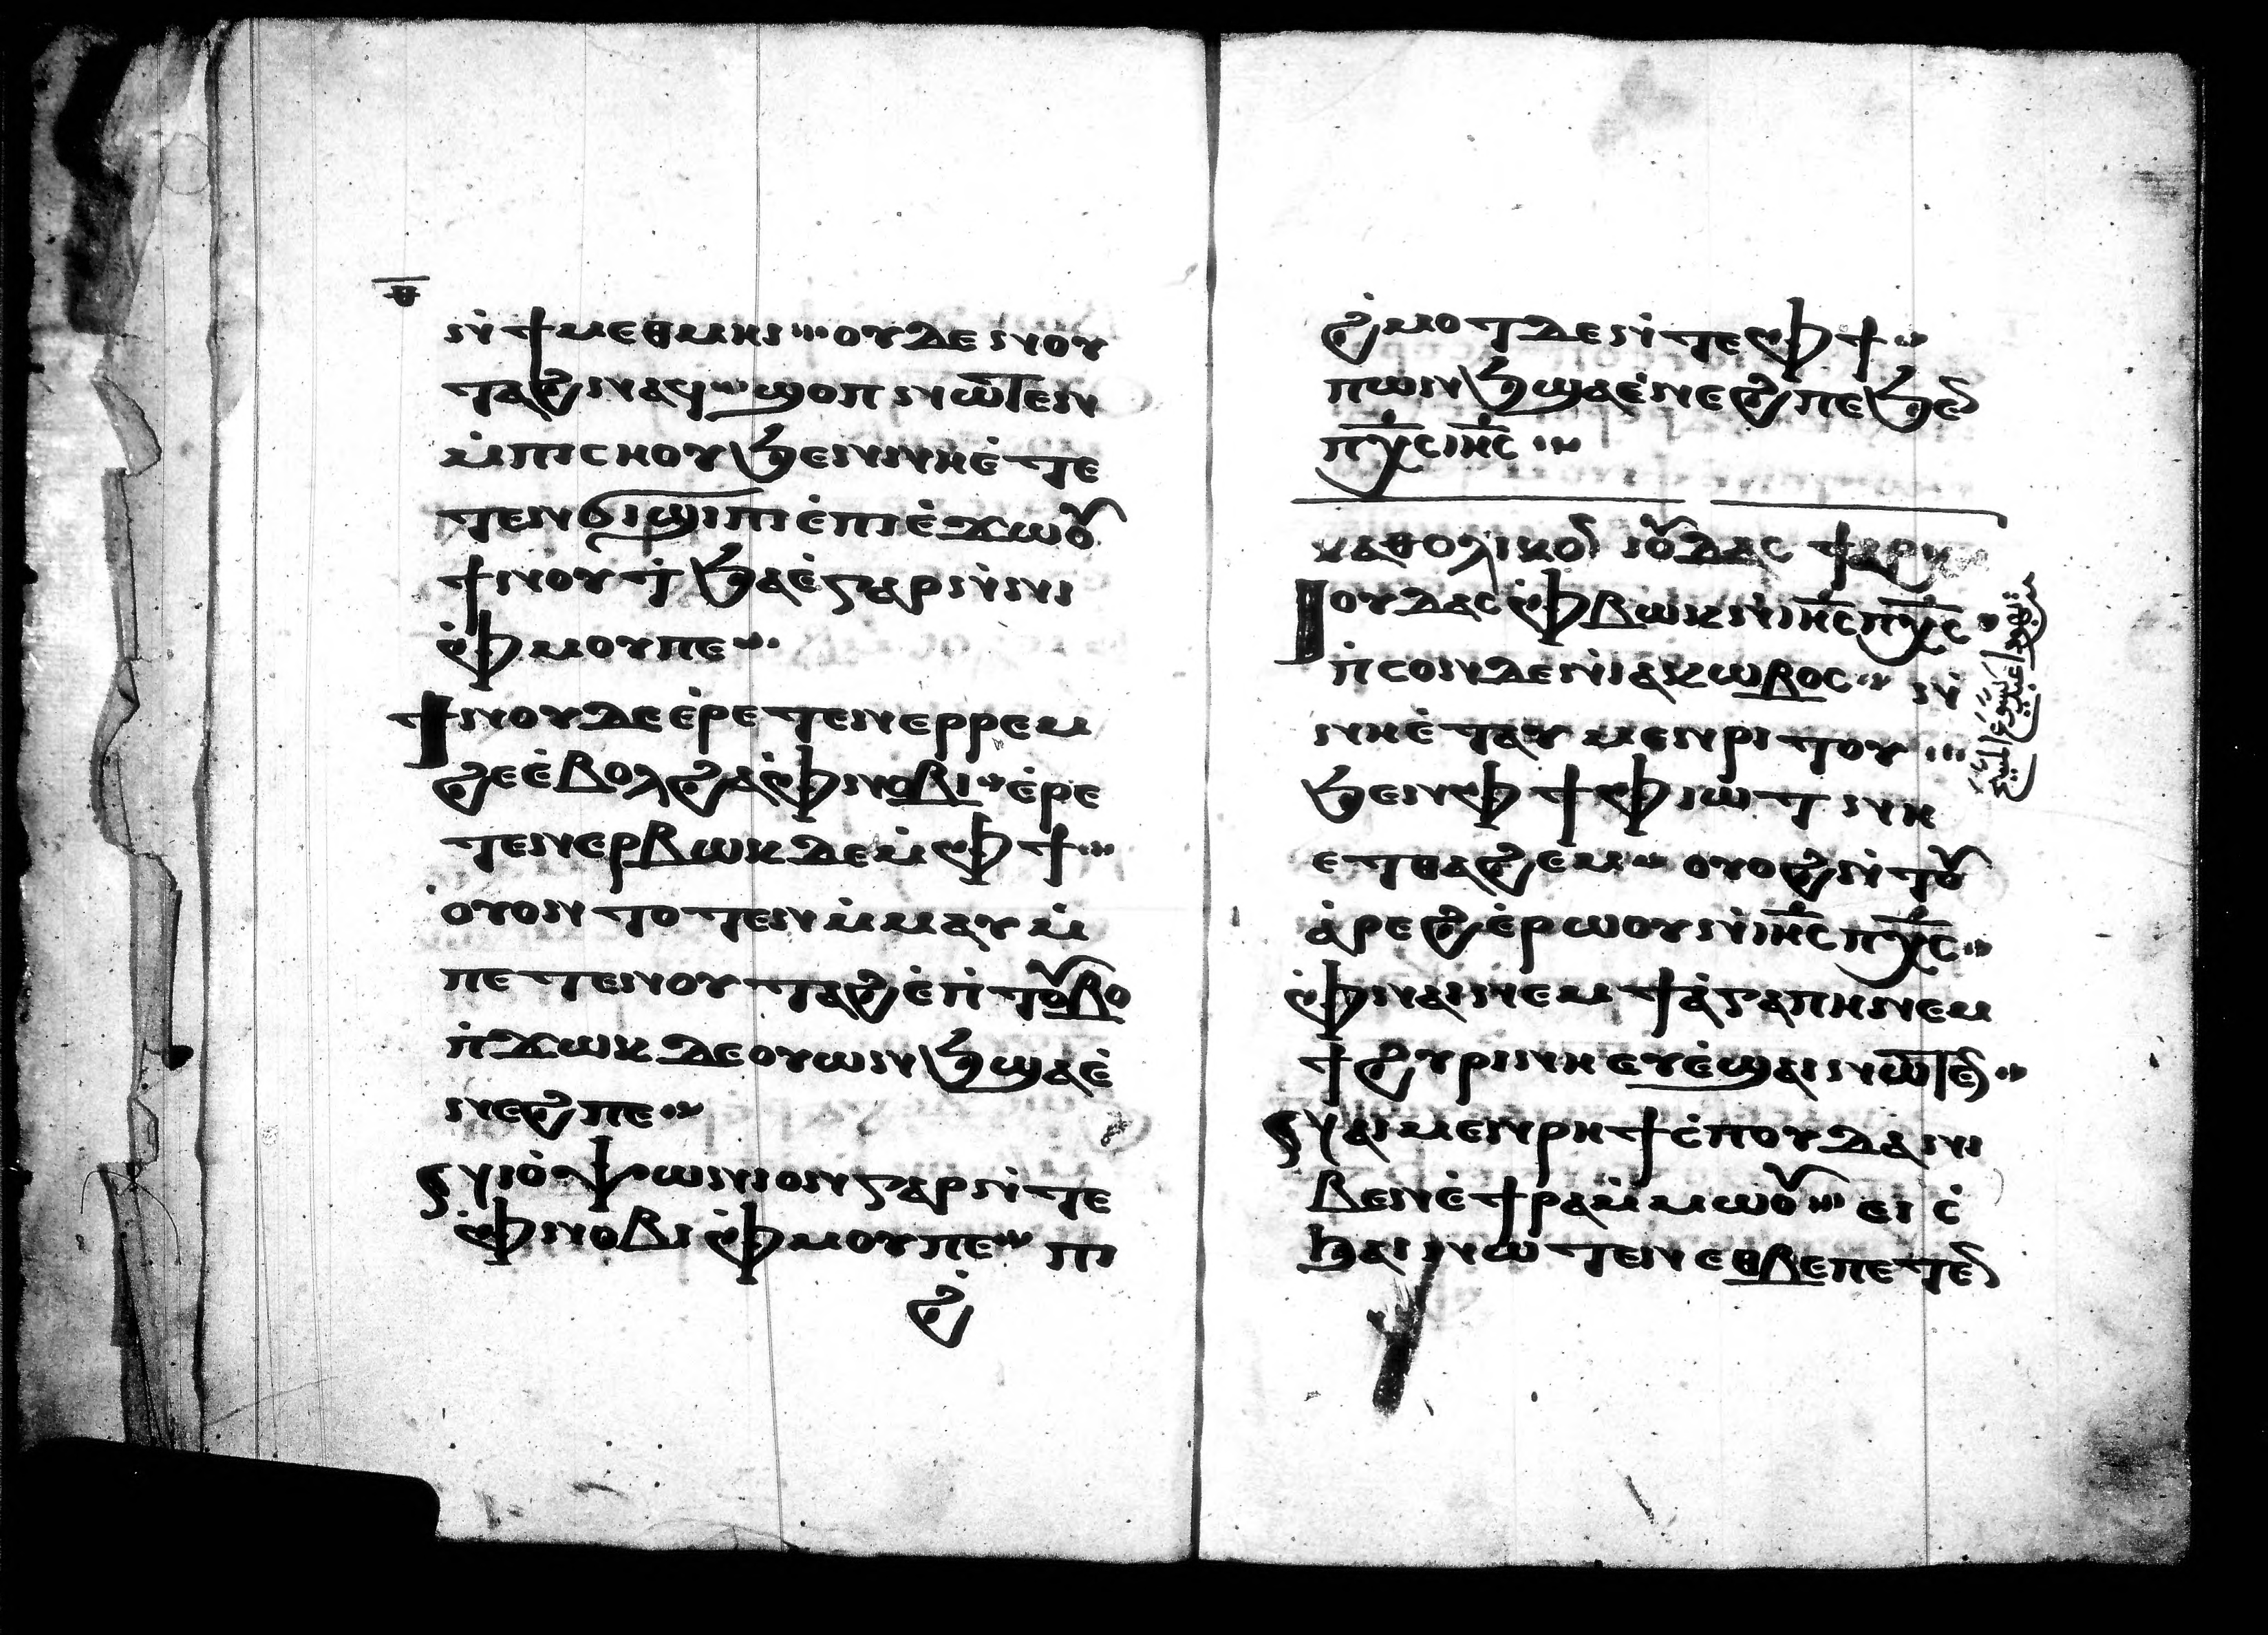 ⲏ̅
ⲛ̀ϯⲙⲉⲑⲙⲏⲓ ⁘ ⲟⲩⲇⲉ ⲛⲟⲩ
ⲧⲁϩ ⲛⲁϥ ⁘ ϣⲟⲡ ⲛⲱⲧⲉⲛ
ⲙ̀ⲡⲓⲥⲏⲟⲩ ϧⲉⲛⲛⲏⲉ̀ⲧⲉ
ⲧⲉⲛϭⲓϣⲓⲡⲓ ⲉ̀ⲡⲓⲉ̀ϫⲱⲟⲩ
ϯⲛⲟⲩ ⲧ̀ϧⲁⲉ̀ ⲅⲁⲣ ⲛ̀ⲛⲓ
ⲫ̀ⲙⲟⲩ ⲡⲉ ⁘
ϯⲛⲟⲩ ⲇⲉ ⲉ̀ⲣⲉⲧⲉⲛⲉⲣⲣⲉⲙ
ϩⲉ ⲉ̀ⲃⲟⲗ ϩⲁ ⲫ̀ⲛⲟⲃⲓ ⁘ ⲉ̀ⲣⲉ
ⲧⲉⲛⲉⲣⲃⲱⲕ ⲇⲉ ⲙ̀ⲫϯ ⁘
ⲟ̀ⲩⲟⲛⲧⲟⲧⲉⲛ ⲙ̀ⲙⲁⲩ ⲙ̀
ⲡⲉⲧⲉⲛⲟⲩⲧⲁϩ ⲉ̀ⲡ̀ⲧⲟⲩⲃⲟ
ⲡ̀ϫⲱⲕ ⲇⲉ ⲟⲩⲱⲛϧ ϣⲁⲉ̀
ⲛⲉϩ ⲡⲉ ⁘
ⲛⲓⲟ̀ⲯⲱⲛⲓⲟⲛ ⲅⲁⲣ ⲛ̀ⲧⲉ
ⲫ̀ⲛⲟⲃⲓ ⲫ̀ⲙⲟⲩ ⲡⲉ ⁘ ⲡⲓ
ϩ̀
ϩ̀ⲙⲟⲧ ⲇⲉ ⲛ̀ⲧⲉ ⲫϯ ⁘
ⲡⲱⲛϧ ϣⲁⲉ̀ⲛⲉϩ ⲡⲉ ϧⲉⲛ
ⲡⲭ̅ⲥ ⲓⲏ̅ⲥ ⁘
ⲕⲁⲑⲟⲗⲓⲕⲟⲛ ⲓⲟⲩⲇⲁⲥ ϯⲁⲣⲭⲏ
ⲓⲟⲩⲇⲁⲥ ⲫ̀ⲃⲱⲕ ⲛ̀ⲓⲏ̅ⲥ ⲡⲭ̅ⲥ ⁘
ⲡ̀ⲥⲟⲛ ⲇⲉ ⲛ̀ⲓⲁⲕⲱⲃⲟⲥ ⁘ ⲛ̀
ⲛⲏⲉ̀ⲧⲁⲩⲙⲉⲛⲣⲓⲧⲟⲩ ⁘
ϧⲉⲛ ⲫϯ ⲫⲓⲱⲧ ⲛⲏ
ⲉⲧⲑⲁϩⲉⲙ ⁘ ⲟⲩⲟϩ ⲛ̀ⲧⲟⲩ
ⲁ̀ⲣⲉϩ ⲉ̀ⲣⲱⲟⲩ ⲛ̀ⲓⲏ̅ⲥ ⲡⲭ̅ⲥ ⁘
ⲫ̀ⲛⲁⲓ ⲛⲉⲙ ϯⲁ̀ⲅⲁⲡⲏ ⲛⲉⲙ
ϯϩⲩⲣⲓⲛⲏ ⲉⲩⲉ̀ϣⲁⲓ ⲛⲱⲧⲉⲛ ⁘
ⲛⲁⲙⲉⲛⲣⲏϯ ⲥ̀ⲡⲟⲩⲇⲁ ⲛⲓ
ⲃⲉⲛ ⲉ̀ϯⲣⲁ ⲙ̀ⲙⲱⲟⲩ ⁘ ⲉⲓⲥ̀
ϧⲁⲓ ⲛⲱⲧⲉⲛ ⲉⲑⲃⲉ ⲡⲉⲧⲉⲛ
يهوذا عبد
يسوع المسيح